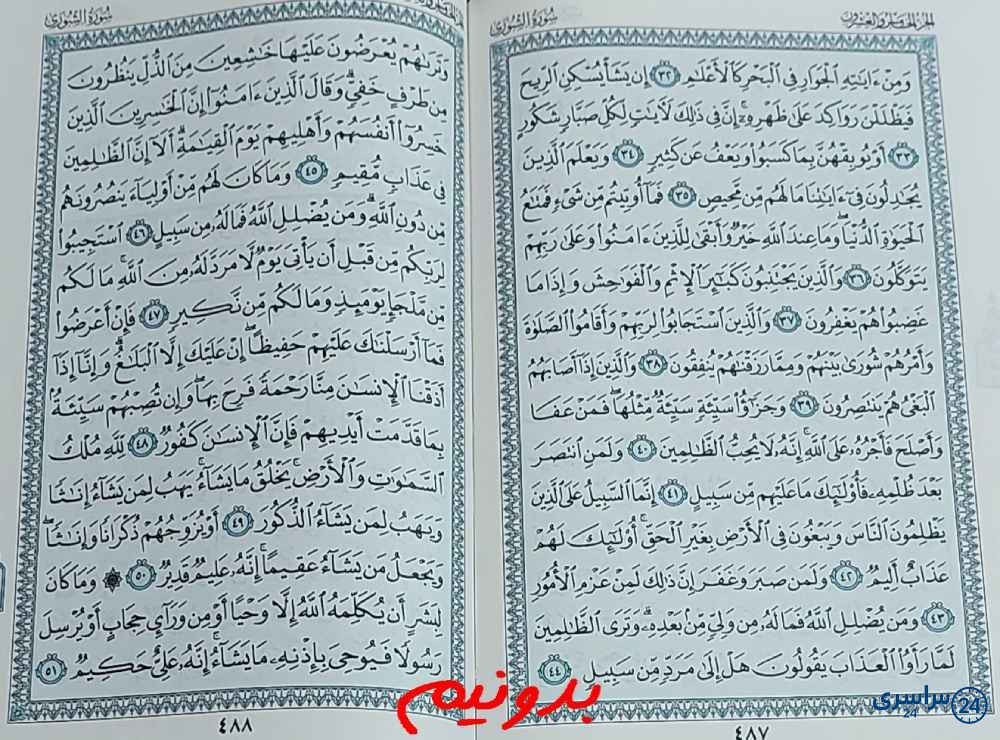 الجزء الخامس والعشرون
سورة الشورى
وَمِنْ ءَايَٰتِهِ ٱلْجَوَارِ فِى ٱلْبَحْرِ كَٱلْأَعْلَٰمِ ﴿٣٢﴾ إِن يَشَأْ يُسْكِنِ ٱلرِّيحَ
فَيَظْلَلْنَ رَوَاكِدَ عَلَىٰ ظَهْرِهِۦٓ إِنَّ فِى ذَٰلِكَ لَءَايَٰتٍ لِّكُلِّ صَبَّارٍ شَكُورٍ
﴿٣٣﴾ أَوْ يُوبِقْهُنَّ بِمَا كَسَبُوا۟ وَيَعْفُ عَن كَثِيرٍ ﴿٣٤﴾ وَيَعْلَمَ ٱلَّذِينَ
يُجَٰدِلُونَ فِىٓ ءَايَٰتِنَا مَا لَهُم مِّن مَّحِيصٍ ﴿٣٥﴾ فَمَآ أُوتِيتُم مِّن شَىْءٍ فَمَتَٰعُ
ٱلْحَيَوٰةِ ٱلدُّنْيَا ۖ وَمَا عِندَ ٱللَّهِ خَيْرٌ وَأَبْقَىٰ لِلَّذِينَ ءَامَنُوا۟ وَعَلَىٰ رَبِّهِمْ
يَتَوَكَّلُونَ ﴿٣٦﴾ وَٱلَّذِينَ يَجْتَنِبُونَ كَبَٰٓئِرَ ٱلْإِثْمِ وَٱلْفَوَٰحِشَ وَإِذَا مَا
غَضِبُوا۟ هُمْ يَغْفِرُونَ ﴿٣٧﴾ وَٱلَّذِينَ ٱسْتَجَابُوا۟ لِرَبِّهِمْ وَأَقَامُوا۟ ٱلصَّلَوٰةَ
وَأَمْرُهُمْ شُورَىٰ بَيْنَهُمْ وَمِمَّا رَزَقْنَٰهُمْ يُنفِقُونَ ﴿٣٨﴾ وَٱلَّذِينَ إِذَآ أَصَابَهُمُ
ٱلْبَغْىُ هُمْ يَنتَصِرُونَ ﴿٣٩﴾ وَجَزَٰٓؤُا۟ سَيِّئَةٍ سَيِّئَةٌ مِّثْلُهَا ۖ فَمَنْ عَفَا
وَأَصْلَحَ فَأَجْرُهُۥ عَلَى ٱللَّهِ ۚ إِنَّهُۥ لَا يُحِبُّ ٱلظَّٰلِمِينَ ﴿٤٠﴾ وَلَمَنِ ٱنتَصَرَ
بَعْدَ ظُلْمِهِۦ فَأُو۟لَٰٓئِكَ مَا عَلَيْهِم مِّن سَبِيلٍ ﴿٤١﴾ إِنَّمَا ٱلسَّبِيلُ عَلَى ٱلَّذِينَ
يَظْلِمُونَ ٱلنَّاسَ وَيَبْغُونَ فِى ٱلْأَرْضِ بِغَيْرِ ٱلْحَقِّ ۚ أُو۟لَٰٓئِكَ لَهُمْ
عَذَابٌ أَلِيمٌ ﴿٤٢﴾ وَلَمَن صَبَرَ وَغَفَرَ إِنَّ ذَٰلِكَ لَمِنْ عَزْمِ ٱلْأُمُورِ
﴿٤٣﴾ وَمَن يُضْلِلِ ٱللَّهُ فَمَا لَهُۥ مِن وَلِىٍّ مِّنۢ بَعْدِهِۦ ۗ وَتَرَى ٱلظَّٰلِمِينَ
لَمَّا رَأَوُا۟ ٱلْعَذَابَ يَقُولُونَ هَلْ إِلَىٰ مَرَدٍّ مِّن سَبِيلٍ ﴿٤٤﴾
٤٨٧
سورة الشورى
وَتَرَىٰهُمْ يُعْرَضُونَ عَلَيْهَا خَٰشِعِينَ مِنَ ٱلذُّلِّ يَنظُرُونَ
مِن طَرْفٍ خَفِىٍّ ۗ وَقَالَ ٱلَّذِينَ ءَامَنُوٓا۟ إِنَّ ٱلْخَٰسِرِينَ ٱلَّذِينَ
خَسِرُوٓا۟ أَنفُسَهُمْ وَأَهْلِيهِمْ يَوْمَ ٱلْقِيَٰمَةِ ۗ أَلَآ إِنَّ ٱلظَّٰلِمِينَ
فِى عَذَابٍ مُّقِيمٍ ﴿٤٥﴾ وَمَا كَانَ لَهُم مِّنْ أَوْلِيَآءَ يَنصُرُونَهُم
مِّن دُونِ ٱللَّهِ ۗ وَمَن يُضْلِلِ ٱللَّهُ فَمَا لَهُۥ مِن سَبِيلٍ ﴿٤٦﴾ ٱسْتَجِيبُوا۟
لِرَبِّكُم مِّن قَبْلِ أَن يَأْتِىَ يَوْمٌ لَّا مَرَدَّ لَهُۥ مِنَ ٱللَّهِ ۚ مَا لَكُم
مِّن مَّلْجَإٍ يَوْمَئِذٍ وَمَا لَكُم مِّن نَّكِيرٍ ﴿٤٧﴾ فَإِنْ أَعْرَضُوا۟
فَمَآ أَرْسَلْنَٰكَ عَلَيْهِمْ حَفِيظًا ۖ إِنْ عَلَيْكَ إِلَّا ٱلْبَلَٰغُ ۗ وَإِنَّآ إِذَآ
أَذَقْنَا ٱلْإِنسَٰنَ مِنَّا رَحْمَةً فَرِحَ بِهَا ۖ وَإِن تُصِبْهُمْ سَيِّئَةٌۢ
بِمَا قَدَّمَتْ أَيْدِيهِمْ فَإِنَّ ٱلْإِنسَٰنَ كَفُورٌ ﴿٤٨﴾ لِّلَّهِ مُلْكُ
ٱلسَّمَٰوَٰتِ وَٱلْأَرْضِ ۚ يَخْلُقُ مَا يَشَآءُ ۚ يَهَبُ لِمَن يَشَآءُ إِنَٰثًا
وَيَهَبُ لِمَن يَشَآءُ ٱلذُّكُورَ ﴿٤٩﴾ أَوْ يُزَوِّجُهُمْ ذُكْرَانًا وَإِنَٰثًا ۖ
وَيَجْعَلُ مَن يَشَآءُ عَقِيمًا ۚ إِنَّهُۥ عَلِيمٌ قَدِيرٌ ﴿٥٠﴾ ۞ وَمَا كَانَ
لِبَشَرٍ أَن يُكَلِّمَهُ ٱللَّهُ إِلَّا وَحْيًا أَوْ مِن وَرَآئِ حِجَابٍ أَوْ يُرْسِلَ
رَسُولًا فَيُوحِىَ بِإِذْنِهِۦ مَا يَشَآءُ ۚ إِنَّهُۥ عَلِىٌّ حَكِيمٌ ﴿٥١﴾
٤٨٨
بدونیم
سراسری
24
24